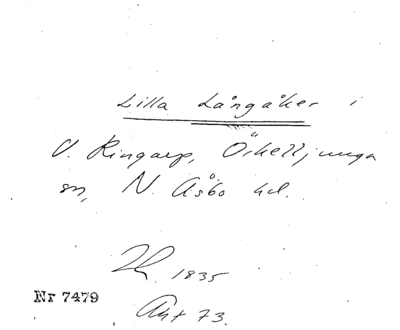 Lilla Långåker i
V. Ringarp, Örkelljunga
sn, N. Åsbo hd.
1835
Nr 7479
Akt 73.